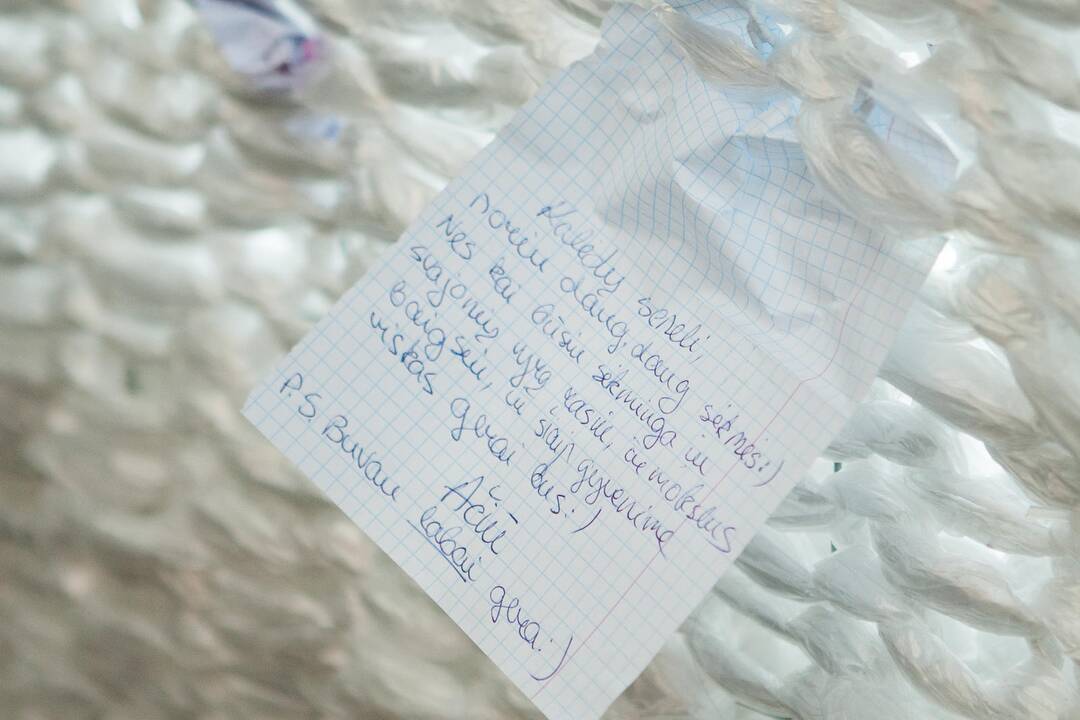 Kalėdų seneli,
noriu daug, daug sėkmės:)
Nes kai būsiu sėkminga ir
svajonių vyrą rasiu, ir mokslus
baigsiu, ir šiaip gyvenime
viskas gerai bus:)
Ačiū
P.S. Buvau labai gera:)